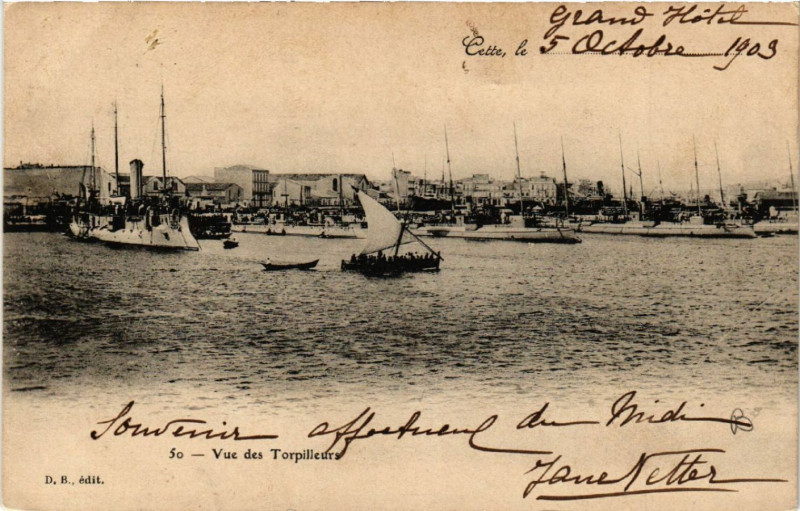 Grand Hôtel
Cette, le 5 Octobre 1903
Souvenir affectueux du Midi
50 — Vue des Torpilleurs
D. B., édit.
Jane Netter